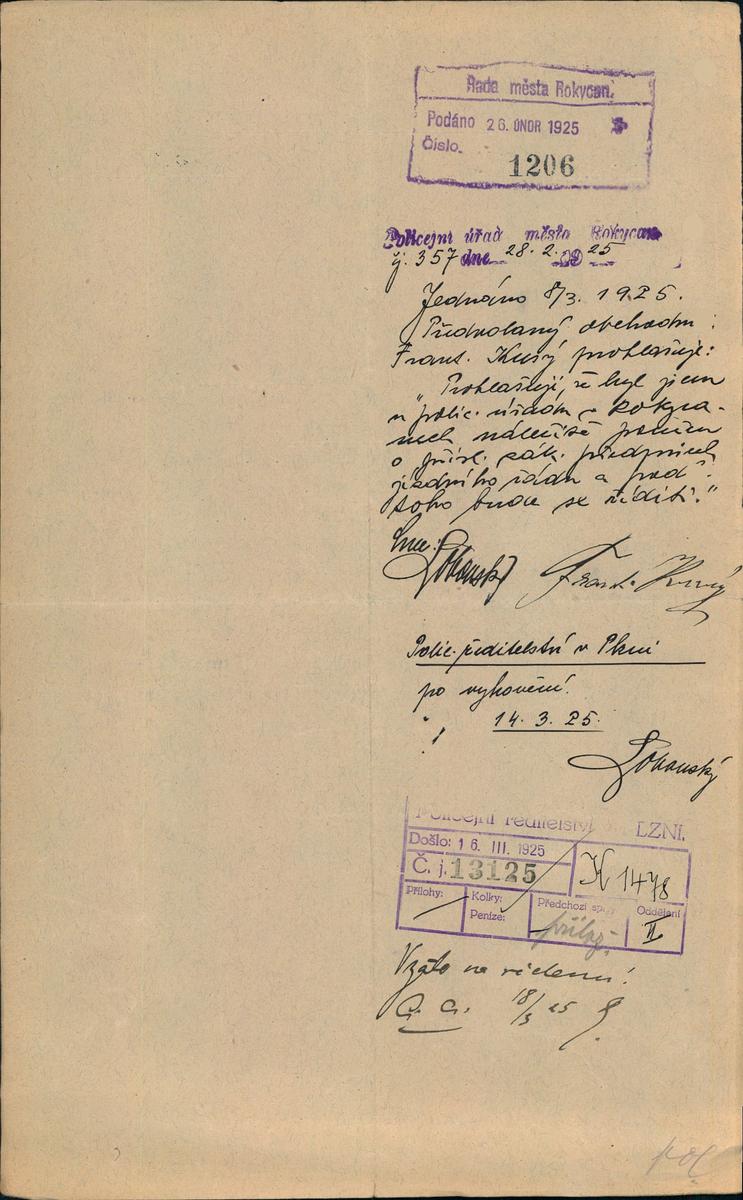 Rada města Rokycan.
Podáno 26. ÚNOR 1925
Číslo
1206
Policejní úřad města Rokycan
čj. 357 dne 28. 2. 1925
Jednáno 8/3. 1925.
Předvolaný obchodn.
Frant. Kusý prohlašuje:
"Prohlašuji, že byl jsem
u polic. úřadu v Rokyca-
nech náležitě poučen
o přísl. zák. předpisech
jízdního řádu a pod
toho budu se říditi."
Lovanský Frant. Kusý
Polic. ředitelství v Plzni
po vyhovění.
14. 3. 25.
Lovanský
Policejní ředitelství v PLZNI.
Došlo: 16. III. 1925
Č. j. 13125 K 1478
Přílohy: Kolky: Předchozí spisy Oddělení
Peníze: II
Vzato na vědomí!
a. a. 18/3 25